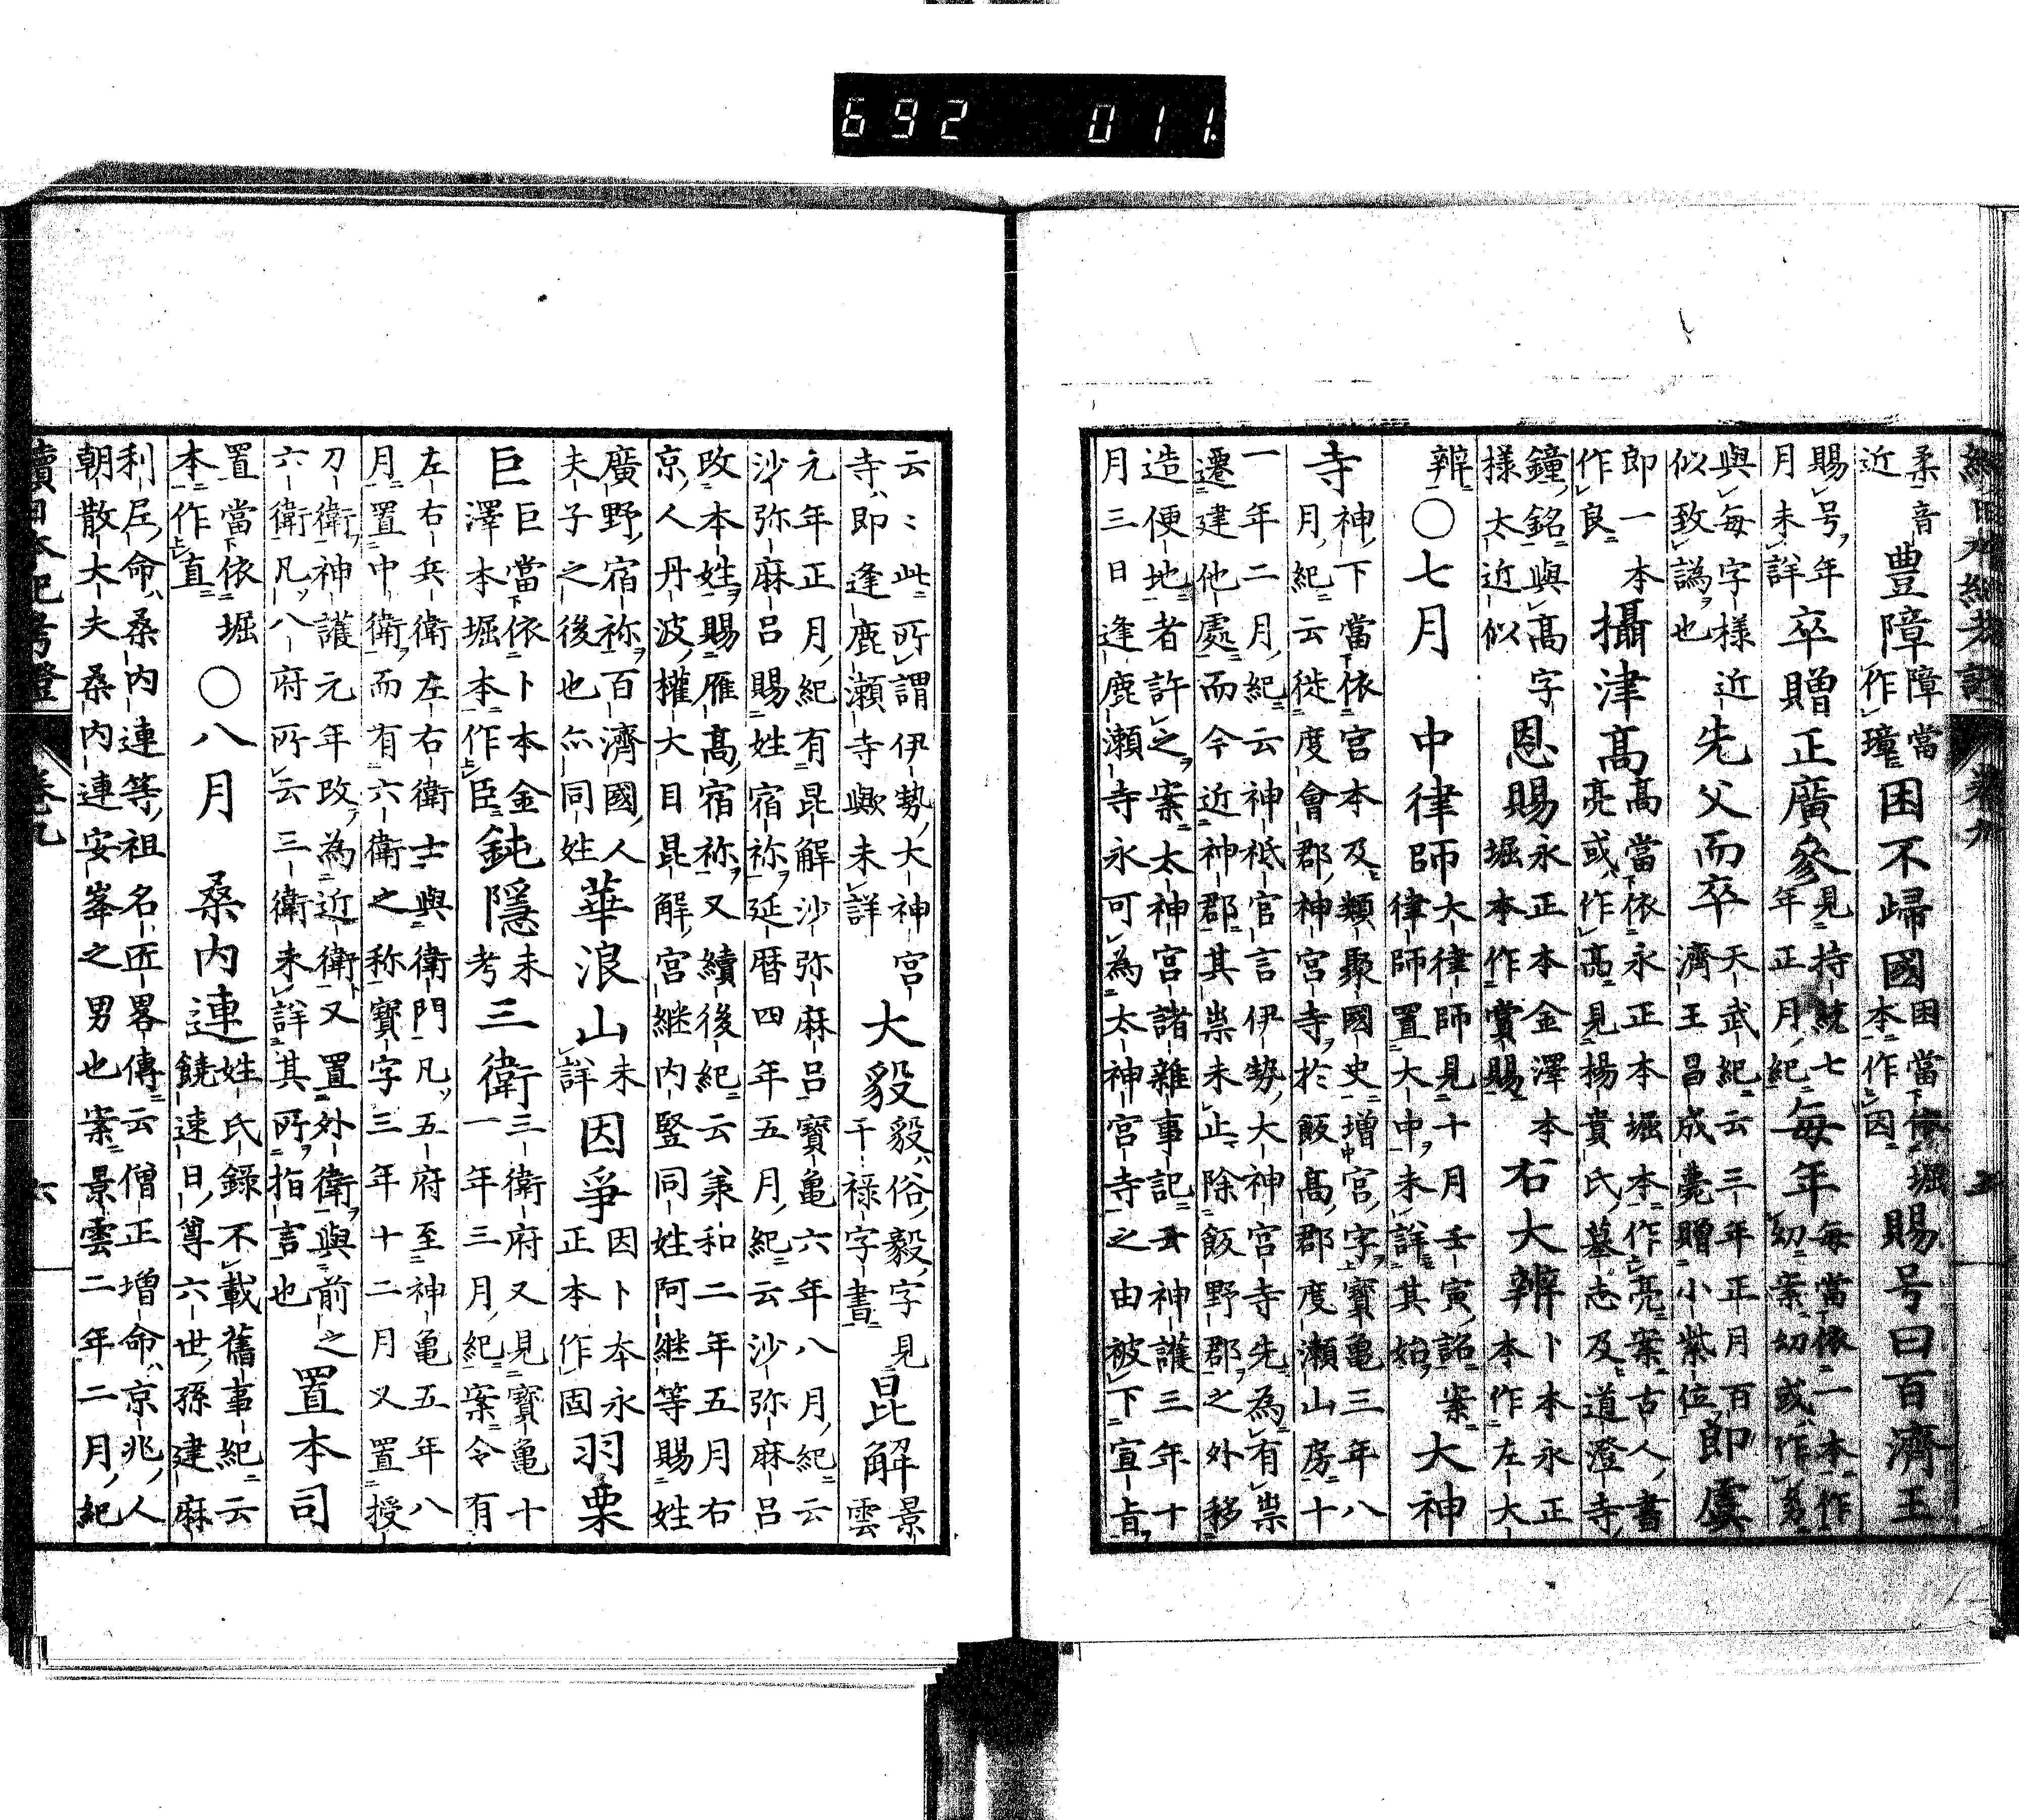 692 011
柔音
近
豊障
障當
作璋
困不歸國
困當依堀
本作因
賜号曰百濟王
賜号年
月未詳
卒贈正廣參
見持統七
年正月紀
毎年
毎當依一本作
幼案幼或作㓜
與毎字様近
似致譌也
先父而卒
天武紀云三年正月百
濟王昌成薨贈小紫位
即虞
即一本
作良
攝津高
高當依永正本堀本作亮案古人書
亮或作高見楊貴氏墓志及道澄寺
鐘銘與高字
様太近似
恩賜
永正本金澤本
堀本作賞賜
右大辨
卜本永正
本作左大
辨
○七月　中律師
大律師見十月壬寅詔案
律師置大中未詳其始
大神
寺
神下當依宮本及類聚國史増宮字寶亀三年八
月紀云徙度會郡神宮寺於飯高郡度瀬山房十
一年二月紀云神祇官言伊勢大神宮寺先為有祟
遷建他處而今近神郡其祟未止除飯野郡之外移
造便地者許之案太神宮諸雜事記云神護三年十
月三日逢鹿瀬寺永可為太神宮寺之由被下宣旨
云々此所謂伊勢大神宮
寺即逢鹿瀬寺歟未詳
大毅
毅俗毅字見
干禄字書
昆解
景
雲
元年正月紀有昆解沙弥麻呂寶亀六年八月紀云
沙弥麻呂賜姓宿祢延暦四年五月紀云沙弥麻呂
改本姓賜雁高宿祢又續後紀云羕和二年五月右
京人丹波權大目昆解宮継内竪同姓阿継等賜姓
廣野宿祢百濟國人
夫子之後也亦同姓
華浪山
未
詳
因爭
因卜本永
正本作固
羽栗
巨
巨當依卜本金
澤本堀本作臣
鈍隱
未
考
三衛
三衛府又見寶亀十
一年三月紀案令有
左右兵衛左右衛士與衛門凡五府至神亀五年八
月置中衛而有六衛之称寶字三年十二月又置授
刀衛神護元年改為近衛又置外衛與前之
六衛凡八府所云三衛未詳其所指言也
置本司
置當依堀
本作直
○八月　桑内連
姓氏錄不載舊事紀云
饒速日尊六世孫建麻
利尼命桑内連等祖名匠畧傳云僧正増命京兆人
朝散大夫桑内連安峯之男也案景雲二年二月紀
續日本紀考證　卷九　六